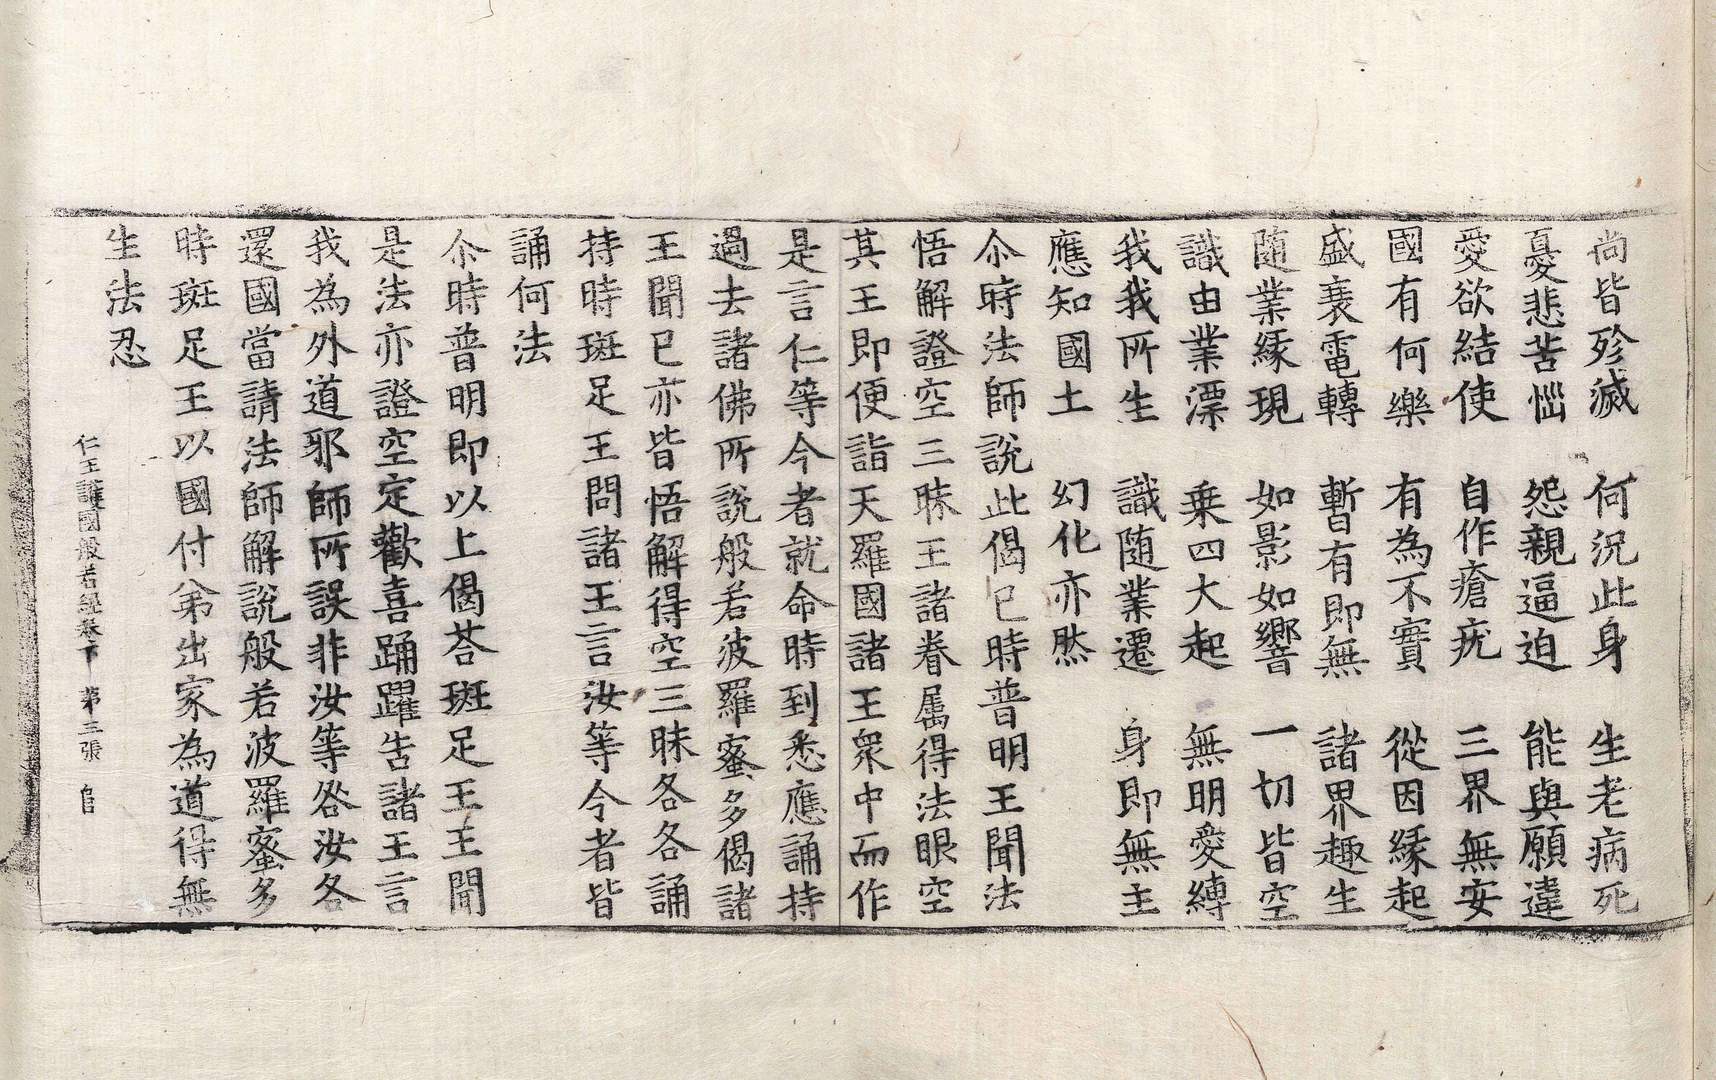 尚皆殄滅　何況此身　生老病死
憂悲苦惱　怨親逼迫　能與願違
愛欲結使　自作瘡疣　三界無安
國有何樂　有為不實　從因緣起
盛衰電轉　暫有即無　諸界趣生
随業緣現　如影如響　一切皆空
識由業漂　乗四大起　無明愛縛
我我所生　識隨業遷　身即無主
應知國土　幻化亦然
尒時法師說此偈已時普明王聞法
悟解證空三昧王諸眷属得法眼空
其王即便詣天羅國諸王衆中而作
是言仁等今者就命時到悉應誦持
過去諸佛所說般若波羅蜜多偈諸
王聞已亦皆悟解得空三昧各各誦
持時斑足王問諸王言汝等今者皆
誦何法
尒時普明即以上偈荅斑足王王聞
是法亦證空定歡喜踊躍告諸王言
我為外道邪師所誤非汝等咎汝各
還國當請法師解說般若波羅蜜多
時斑足王以國付弟出家為道得無
生法忍
仁王護國般若經卷下　第三張